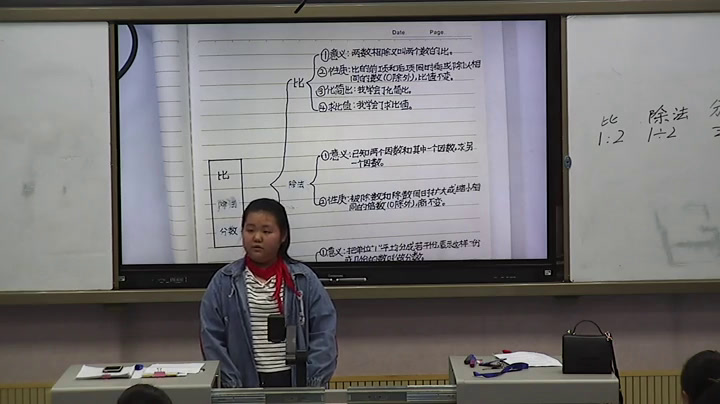 Date Page
①意义:两数相除又叫两个数的比。
比
②性质:比的前项和后项同时乘或除以相
同的数(0除外),比值不变。
③化简比:我学会了化简比。
④求比值:我学会了求比值。
①意义:已知两个因数的积和其中一个因数,求另
一个因数。
除法
②性质:被除数和除数同时扩大或缩小相
同的倍数(0除外),商不变。
①意义:把单位"1"平均分成若干份,表示这样一份
或几份的数叫做分数。
比
除法
分数
比 除法 分
1:2 1÷2